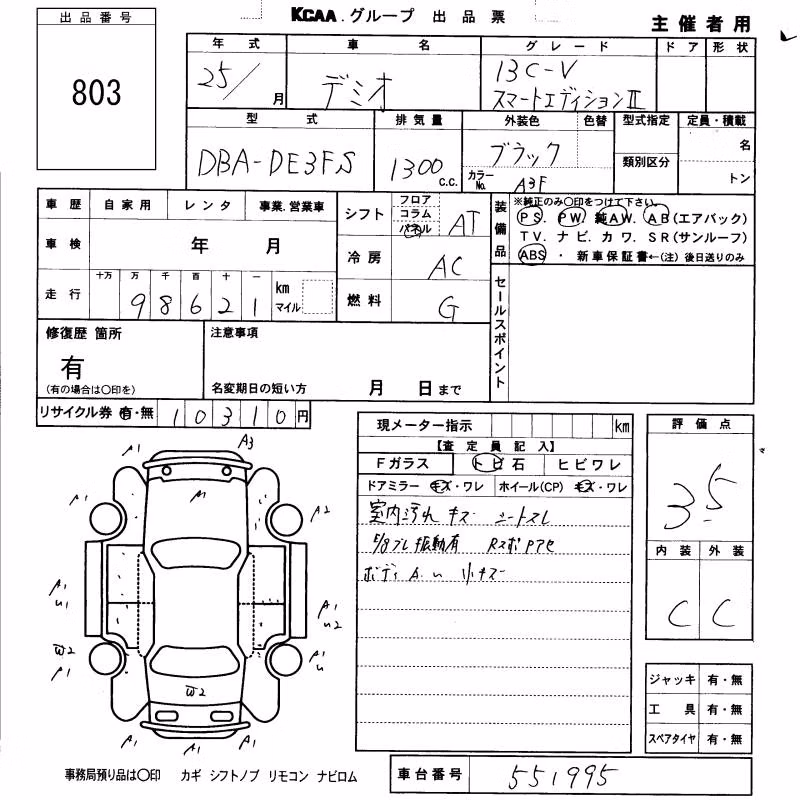 出品番号
803
KCAA.グループ 出品票
主催者用
年式 車名 グレード ドア 形状
25/ 月 デミオ 13C-V
スマートエディションⅡ
型式 排気量 外装色 色替 型式指定 定員・積載
DBA-DE3FS 1300 c.c. ブラック 名
カラーNo. A3F 類別区分 トン
車歴 自家用 レンタ 事業.営業車
車検 年 月
走行 十万 万 千 百 十 一
98621 km マイル
シフト フロア コラム パネル AT
冷房 AC
燃料 G
装備品
※純正のみ○印をつけて下さい。
PS. PW. 純AW. AB(エアバック)
TV. ナビ. カワ. SR(サンルーフ)
ABS ・ 新車保証書←(注)後日送りのみ
セールスポイント
修復歴 箇所
有
(有の場合は○印を)
注意事項
名変期日の短い方 月 日まで
リサイクル券 有・無 10310円
現メーター指示 km
【査定員記入】
Fガラス トビ石 ヒビワレ
ドアミラー キズ・ワレ ホイール(CP) キズ・ワレ
室内汚れ キズ シートスレ
ブレ 振動有
ボディ A.u 小キズ
評価点
3.5
内装 外装
C C
ジャッキ 有・無
工具 有・無
スペアタイヤ 有・無
A1 A3
A1 A2
A1 U1
A1 U2
W2 A1
A1 U
W2
A1 A1
事務局預り品は○印 カギ シフトノブ リモコン ナビロム
車台番号 551995